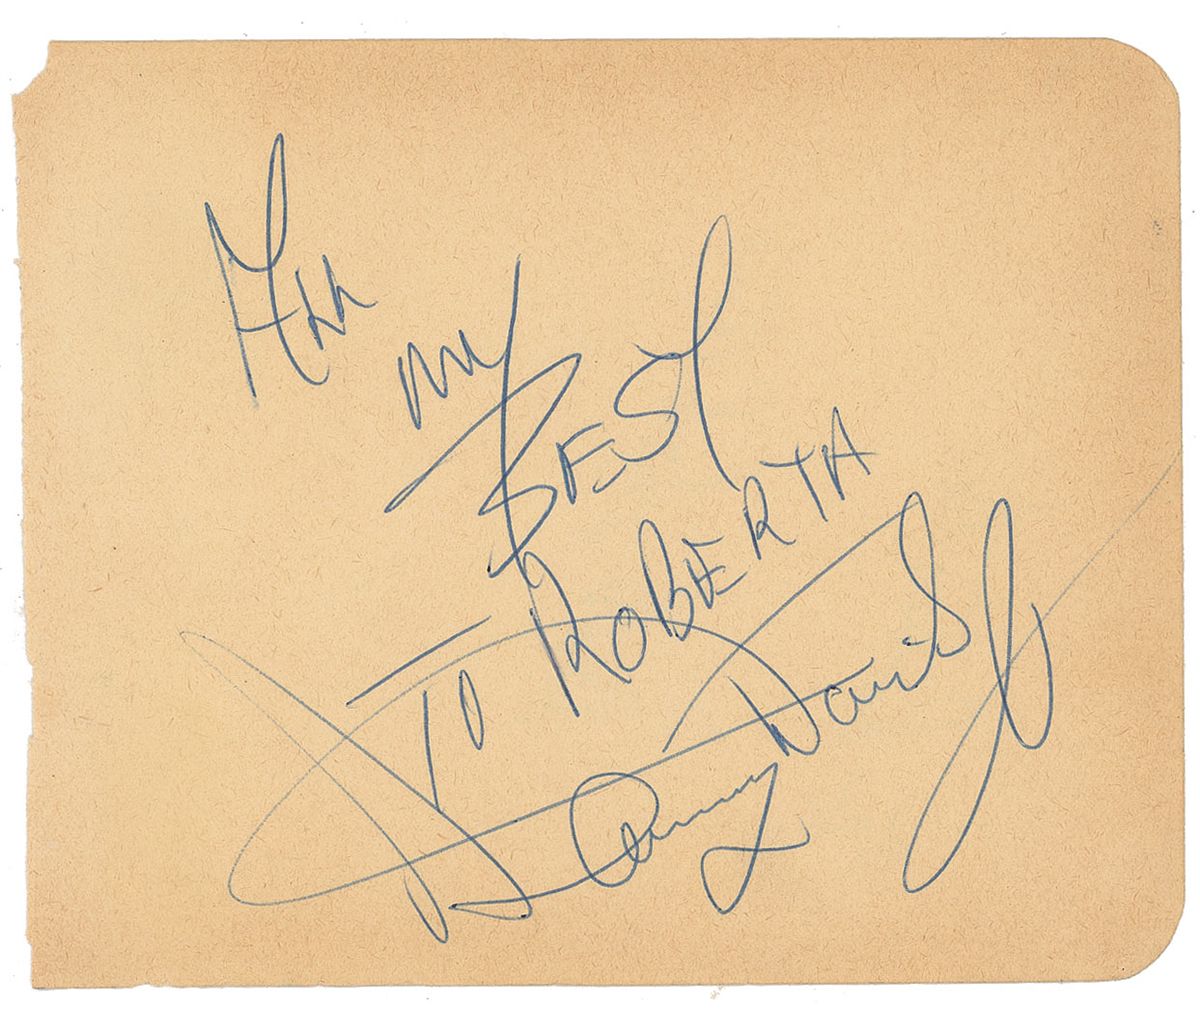 All
my
Best
To ROBERTA
Sammy Davis Jr